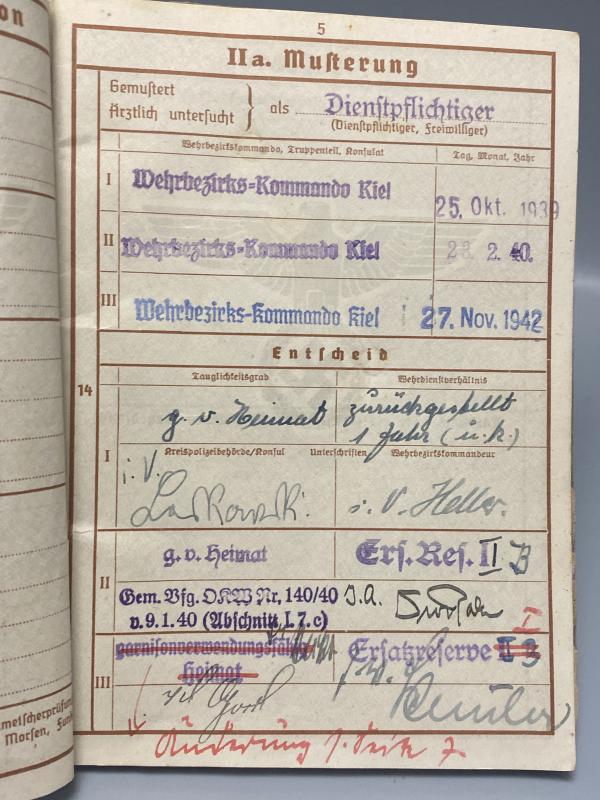 on
5
IIa. Musterung
Gemustert
Ärztlich untersucht
als Dienstpflichtiger
(Dienstpflichtiger, Freiwilliger)
Wehrbezirkskommando, Truppenteil, Konsulat
Tag, Monat, Jahr
I Wehrbezirks-Kommando Kiel 25. Okt. 1939
II Wehrbezirks-Kommando Kiel 2. 40.
III Wehrbezirks-Kommando Kiel 27. Nov. 1942
Entscheid
14
Tauglichkeitsgrad
Wehrdienstverhältnis
g. v. Heimat
zurückgestellt
1 Jahr (u. k.)
I Kreispolizeibehörde/Konsul Unterschriften Wehrbezirkskommandeur
i. V.
i. V. Heller.
II g. v. Heimat Ers. Res. II B
Gem. Vfg. OKW Nr. 140/40
v. 9.1.40 (Abschnitt I.7.c)
J. A.
I
garnisonverwendungsfähig
Heimat
Ersatzreserve II B
III
Änderung s. Seite 7.
melscherprüfun
Morsen, Funk